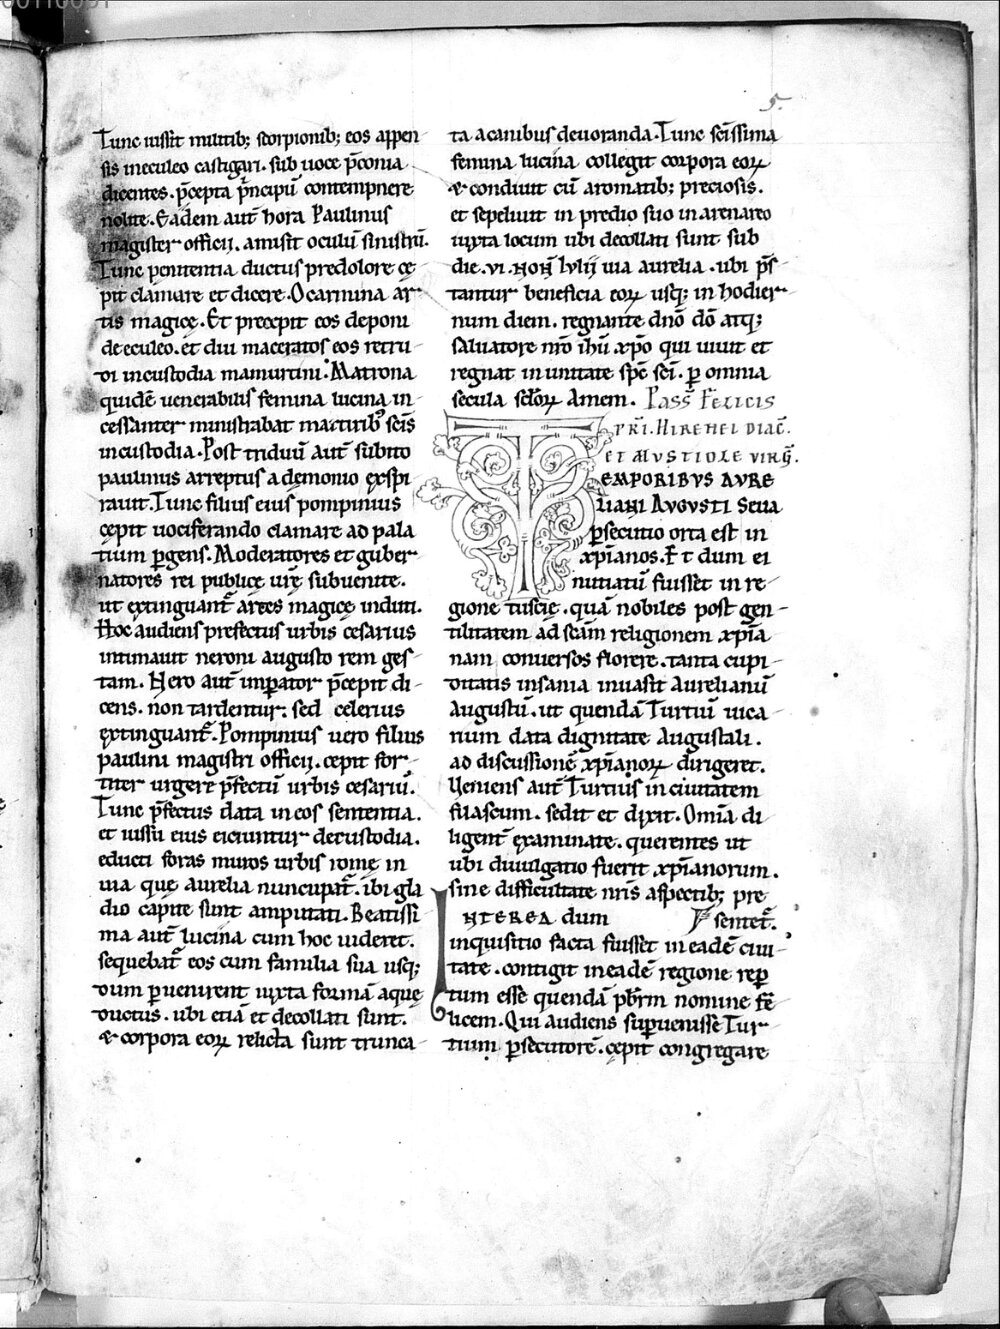 5.
Tunc iussit militib; scorpionib; eos appen-
sis in eculeo castigari. sub uoce p̄conia
dicentes. p̄cepta p̄ncipū contempnere
nolite. Eadem aut̄ hora Paulinus
magister officij. amisit oculū sinistrū.
Tunc penitentia ductus pre dolore cę-
pit clamare et dicere. O carmina ar-
tis magicę. Et precepit eos deponi
de eculeo. et diu maceratos eos retru-
di in custodia mamurtini. Matrona
quidē uenerabilis femina lucina in-
cessanter ministrabat martirib; scīs
in custodia. Post triduū aut̄ subito
paulinus arreptus a demonio exspi-
rauit. Tunc filius eius pompinius
cępit uociferando clamare ad pala-
tium pgens. Moderatores et guber-
natores rei publicę urē subuenite.
ut extinguant̄ artes magicę induti.
Hoc audiens prefectus urbis cesarius
intimauit neroni augusto rem ges-
tam. Nero aut̄ imperator p̄cepit di-
cens. non tardentur. sed celerius
extinguant̄. Pompinius uero filius
paulini magistri officij. cepit for-
titer urgere p̄fectū urbis cesariū.
Tunc p̄fectus data in eos sententia.
et iussu eius eiciuntur de custodia.
educti foras muros urbis romę in
uia quę aurelia nuncupat̄. ibi gla-
dio capite sunt amputati. Beatissi-
ma aut̄ lucina cum hoc uideret.
sequebat̄ eos cum familia sua usq;
dum puenirent iuxta formā aquę
ductus. ubi etiā et decollati sunt.
& corpora eoꝝ relicta sunt trunca-
ta a canibus deuoranda. Tunc scīssima
femina lucina collegit corpora eoꝝ
& condiuit cū aromatib; preciosis.
et sepeliuit in predio suo in arenario
iuxta locum ubi decollati sunt sub
die. vi. noñ Iulij uia aurelia. ubi p̄s-
tantur beneficia eoꝝ usq; in hodier-
num diem. regnante dn̄o dō atq;
saluatore nr̄o ihū xp̄o qui uiuit et
regnat in unitate sp̄c sc̄i. ꝑ omnia
secula sc̄loꝝ Amem. Pass̄ Felicis
PRI. HIRENEI DIAC̄.
ET MVSTIOLE VIRḠ.
TEMPORIBVS AVRE
LIANI AVGVSTI Seua
ꝑsecutio orta est in
xp̄ianos. Et dum ei
nutiatū fuisset in re-
gione tuscię. quā nobiles post gen-
tilitatem ad sc̄am religionem xp̄ia-
nam conuersos florere. tanta cupi-
ditatis insania inuasit Aurelianū
Augustū. ut quendā Turtiū uica-
rium data dignitate Augustali.
ad discussionē xp̄ianoꝝ dirigeret.
Ueniens aut̄ Turtius in ciuitatem
filascum. sedit et dixit. Omīa di-
ligent̄ examinate. querentes ut
ubi diuulgatio fuerit xp̄ianorum.
sine difficultate nr̄is aspectib; pre-
sentet̄.
INTEREA dum
inquisitio facta fuisset in eadē ciui-
tate. contigit in eadē regione rep-
tum esse quendā pb̄rm nomine fe-
licem. Qui audiens supuenisse Tur-
tium ꝑsecutorē. cępit congregare